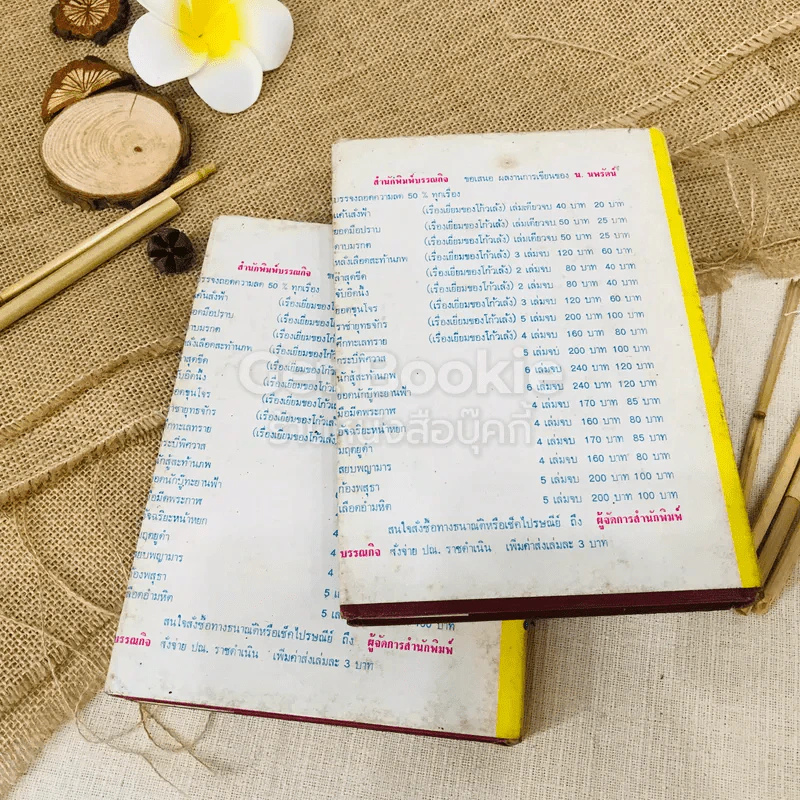 สำนักพิมพ์บรรณกิจ ขอเสนอ ผลงานการเขียนของ น. นพรัตน์
บรรจงถอดความลด 50 % ทุกเรื่อง
แค้นสั่งฟ้า (เรื่องเยี่ยมของโก้วเล้ง) เล่มเดียวจบ 40 บาท 20 บาท
ยอดมือปราบ (เรื่องเยี่ยมของโก้วเล้ง) เล่มเดียวจบ 50 บาท 25 บาท
ดาบมรกต (เรื่องเยี่ยมของโก้วเล้ง) เล่มเดียวจบ 50 บาท 25 บาท
หลั่งเลือดสะท้านภพ (เรื่องเยี่ยมของโก้วเล้ง) 3 เล่มจบ 120 บาท 60 บาท
ล่าสุดขีด (เรื่องเยี่ยมของโก้วเล้ง) 2 เล่มจบ 80 บาท 40 บาท
จับอิดนึ้ง (เรื่องเยี่ยมของโก้วเล้ง) 2 เล่มจบ 80 บาท 40 บาท
ยอดขุนโจร (เรื่องเยี่ยมของโก้วเล้ง) 3 เล่มจบ 120 บาท 60 บาท
ราชายุทธจักร (เรื่องเยี่ยมของโก้วเล้ง) 5 เล่มจบ 200 บาท 100 บาท
ศึกทะเลทราย (เรื่องเยี่ยมของโก้วเล้ง) 4 เล่มจบ 160 บาท 80 บาท
กระบี่พิศวาส 5 เล่มจบ 200 บาท 100 บาท
นักสู้สะท้านภพ 6 เล่มจบ 240 บาท 120 บาท
ยอดนักบู๊ทะยานฟ้า 6 เล่มจบ 240 บาท 120 บาท
มือมีดพระกาฬ 4 เล่มจบ 170 บาท 85 บาท
อัจฉริยะหน้าหยก 4 เล่มจบ 160 บาท 80 บาท
มฤตยูดำ 4 เล่มจบ 170 บาท 85 บาท
สยบพญามาร 4 เล่มจบ 160 บาท 80 บาท
ก้องพสุธา 5 เล่มจบ 200 บาท 100 บาท
เลือดอำมหิต 5 เล่มจบ 200 บาท 100 บาท
สนใจสั่งซื้อทางธนาณัติหรือเช็คไปรษณีย์ ถึง ผู้จัดการสำนักพิมพ์
บรรณกิจ สั่งจ่าย ปณ. ราชดำเนิน เพิ่มค่าส่งเล่มละ 3 บาท
สำนักพิมพ์บรรณกิจ
บรรจงถอดความลด 50 % ทุกเรื่อง
แค้นสั่งฟ้า (เรื่องเยี่ยมของ
ยอดมือปราบ (เรื่องเยี่ยมของ
ดาบมรกต (เรื่องเยี่ยมของ
หลั่งเลือดสะท้านภพ (เรื่องเยี่ยมของโ
ล่าสุดขีด (เรื่องเยี่ยมของโก้
จับอิดนึ้ง (เรื่องเยี่ยมของโก้ว
ยอดขุนโจร (เรื่องเยี่ยมของโก้วเ
ราชายุทธจักร (เรื่องเยี่ยมของโก้วเล้
ศึกทะเลทราย (เรื่องเยี่ยมของโก้วเล้ง
กระบี่พิศวาส
นักสู้สะท้านภพ
ยอดนักบู๊ทะยานฟ้า
มือมีดพระกาฬ
อัจฉริยะหน้าหยก 4
มฤตยูดำ 4
สยบพญามาร 4
ก้องพสุธา 5 เ
เลือดอำมหิต 5 เล่ 100 บาท
สนใจสั่งซื้อทางธนาณัติหรือเช็คไปรษณีย์ ถึง ผู้จัดการสำนักพิมพ์
บรรณกิจ สั่งจ่าย ปณ. ราชดำเนิน เพิ่มค่าส่งเล่มละ 3 บาท
GetBooki
ร้านหนังสือบุ๊คกี้